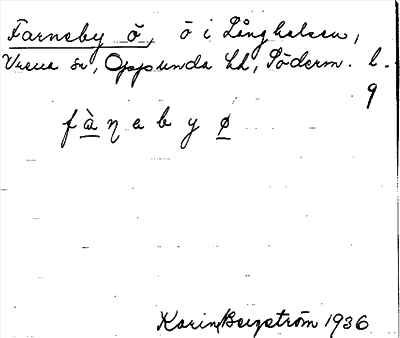 Farneby ö, ö i Långhalsen,
Vrena sn, Oppunda hd, Söderm. l.
9
fàŋebyø
Karin Bergström 1936